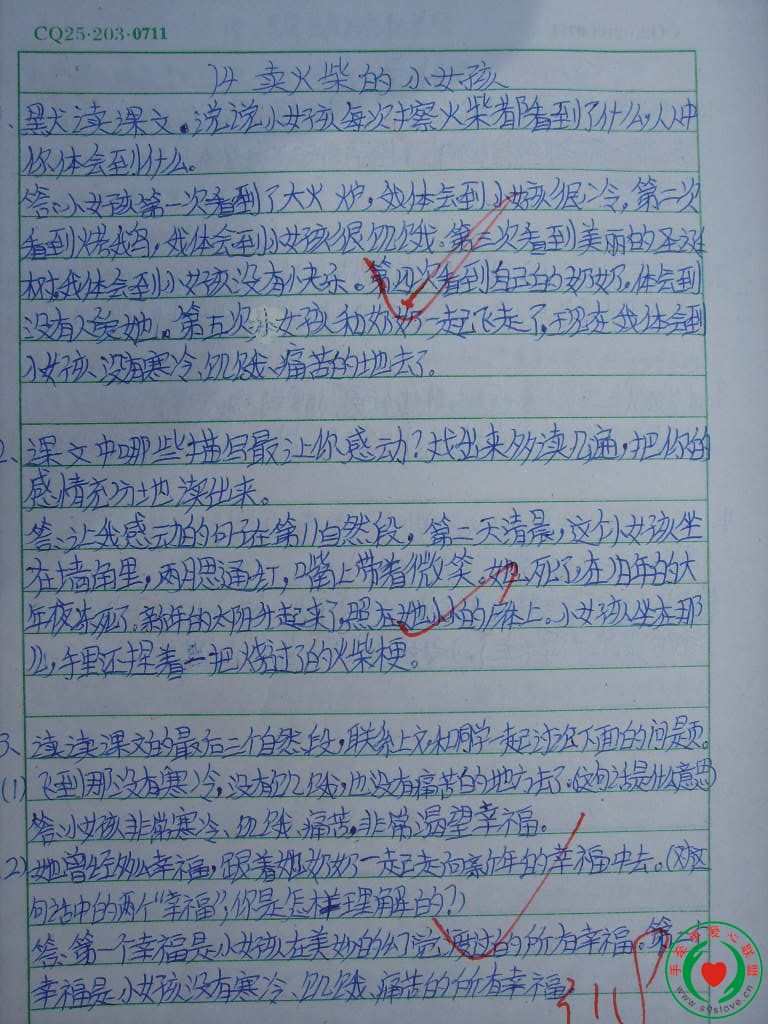 CQ25·203·0711
14 卖火柴的小女孩
1、默读课文。说说小女孩每次擦火柴都看到了什么,从中
你体会到什么。
答:小女孩第一次看到了大火炉,我体会到小女孩很冷,第二次
看到烤鹅,我体会到小女孩很饥饿。第三次看到美丽的圣诞
树。我体会到小女孩没有快乐。第四次看到自己的奶奶。体会到
没有人爱她。第五次小女孩和奶奶一起飞走了,现在我体会到
小女孩、没有寒冷、饥饿、痛苦的地去了。
2、课文中哪些描写最让你感动?找出来多读几遍,把你的
感情充分地读出来。
答:让我感动的句子在第11自然段,第二天清晨,这个小女孩坐
在墙角里,两腮通红,嘴上带着微笑。她死了,在旧年的大
年夜冻死了。新年的太阳升起来了,照在她小小的尸体上。小女孩坐在那
儿,手里还捏着一把烧过了的火柴梗。
3、读读课文的最后三个自然段,联系上文,和同学一起讨论下面的问题。
(1)飞到那没有寒冷,没有饥饿,也没有痛苦的地方去了。(这句话是什么意思)
答:小女孩非常寒冷、饥饿、痛苦,非常渴望幸福。
2)她曾经多么幸福,跟着她奶奶一起走向新年的幸福中去。(对这
句话中的两个“幸福”,你是怎样理解的?)
答、第一个幸福是小女孩在美妙的幻觉渡过的所有幸福。第二个
幸福是小女孩没有寒冷、饥饿、痛苦的所有幸福
手牵手爱心联盟
www.sqslove.cn